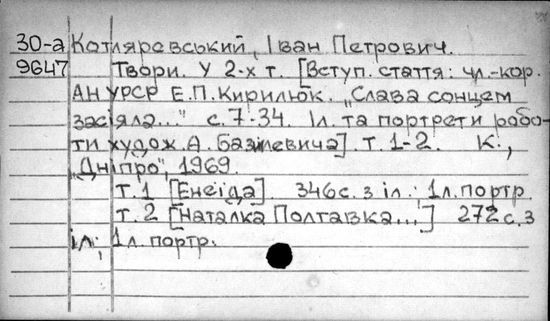 30-а Котляревський, Іван Петрович.
9647 Твори. У 2-х т. [Вступ. стаття: чл.-кор.
АН УРСР Е.П.Кирилюк. „Слава сонцем
засіяла..." с.7-34. Іл. та портрети робо-
ти худож. А. Базилевича]. т.1-2. К.,
„Дніпро", 1969.
т.1 [Енеїда]. 346с. з іл.; 1л.портр.
т.2 [Наталка Полтавка...] 272с. з
іл.; 1л. портр.